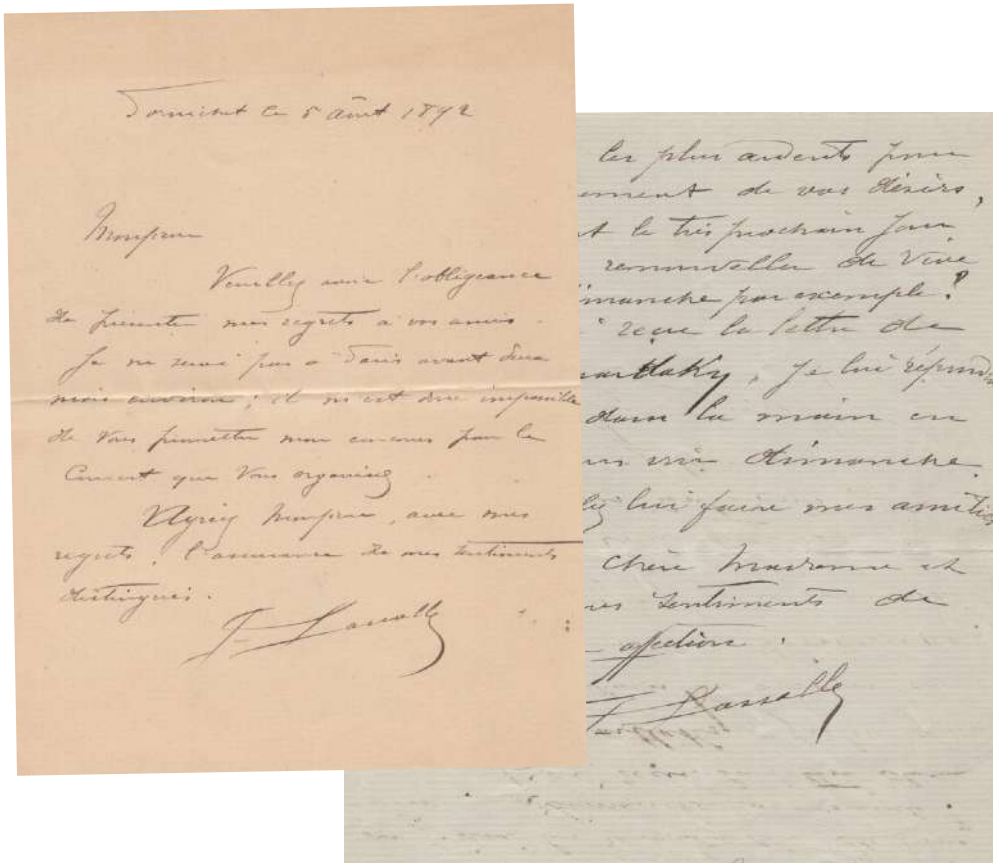 Pornichet ce 5 août 1892
Monsieur
Veuillez avoir l'obligeance
de présenter mes regrets à vos amis.
Je ne serai pas à Paris avant deux
mois environ ; il m'est donc impossible
de vous promettre mon concours pour le
Concert que vous organisez.
Agréez Monsieur, avec mes
regrets, l'assurance de mes sentiments
distingués.
J Lassalle
les plus ardents pour
ement de vos désirs,
t le très prochain jour
renouveller de vive
manche par exemple ?
reçu la lettre de
, je lui réponds
dans la main en
dimanche.
lui faire mes amitiés
chère Madame et
sentiments de
affection.
J Lassalle